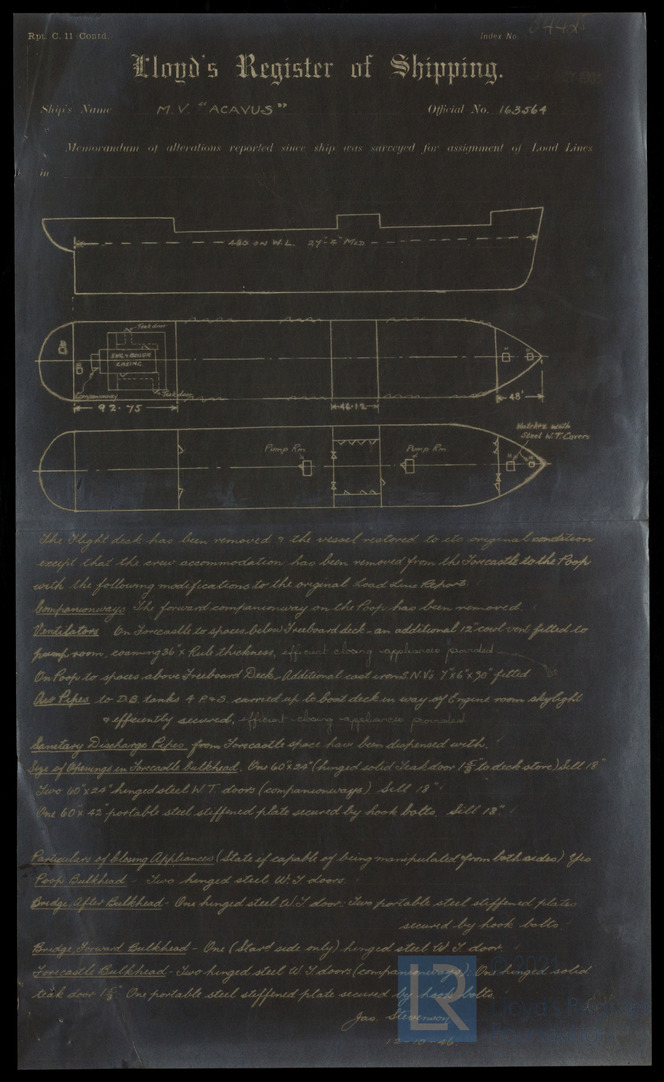 Rpt. C. 11 Contd.
Index No.
Lloyd's Register of Shipping.
Ship's Name M.V. "ACAVUS" Official No. 163564
Memorandum of alterations reported since ship was surveyed for assignment of Load Lines
in
480 ON W.L. 27'-2" MLD
Teak door
ENG & BOILER
CASING
Companionway
Teak door
92.75
46.12
48'
Hatches with
Steel W.T. Covers
Pump Rm
Pump Rm
The flight deck has been removed & the vessel restored to its original condition
except that the crew accommodation has been removed from the Forecastle to the Poop
with the following modifications to the original Load Line Report.
Companionways The forward companionway on the Poop has been removed.
Ventilators On Forecastle to spaces below Freeboard deck - an additional 12" cowl vent fitted to
pump room, coaming 36" x Rule thickness, efficient closing appliances provided
On Poop to spaces above Freeboard Deck, Additional cast iron S.N.Vs 7"x6"x30" fitted
Air Pipes to D.B. tanks 4 P&S. carried up to boat deck in way of Engine room skylight
& efficiently secured, efficient closing appliances provided
Sanitary Discharge Pipes from Forecastle space have been dispensed with.
Size of Openings in Forecastle bulkhead. One 60"x24" (hinged solid teak door to deck store) Sill 18"
Two 60"x24" hinged steel W.T. doors (companionways) Sill 18".
One 60" x 42" portable steel stiffened plate secured by hook bolts, Sill 18".
Particulars of Closing Appliances (State if capable of being manipulated from both sides) Yes
Poop Bulkhead - Two hinged steel W.T. doors.
Bridge After Bulkhead - One hinged steel W.T. door; Two portable steel stiffened plates
secured by hook bolts.
Bridge Forward Bulkhead - One (Starb side only) hinged steel W.T door.
Forecastle Bulkhead - Two hinged steel W.T doors (companionways); One hinged solid
teak door. One portable steel stiffened plate secured by hook bolts.
Jas. Stevenson
12-10-46
LR
© 2021
Lloyd's Register